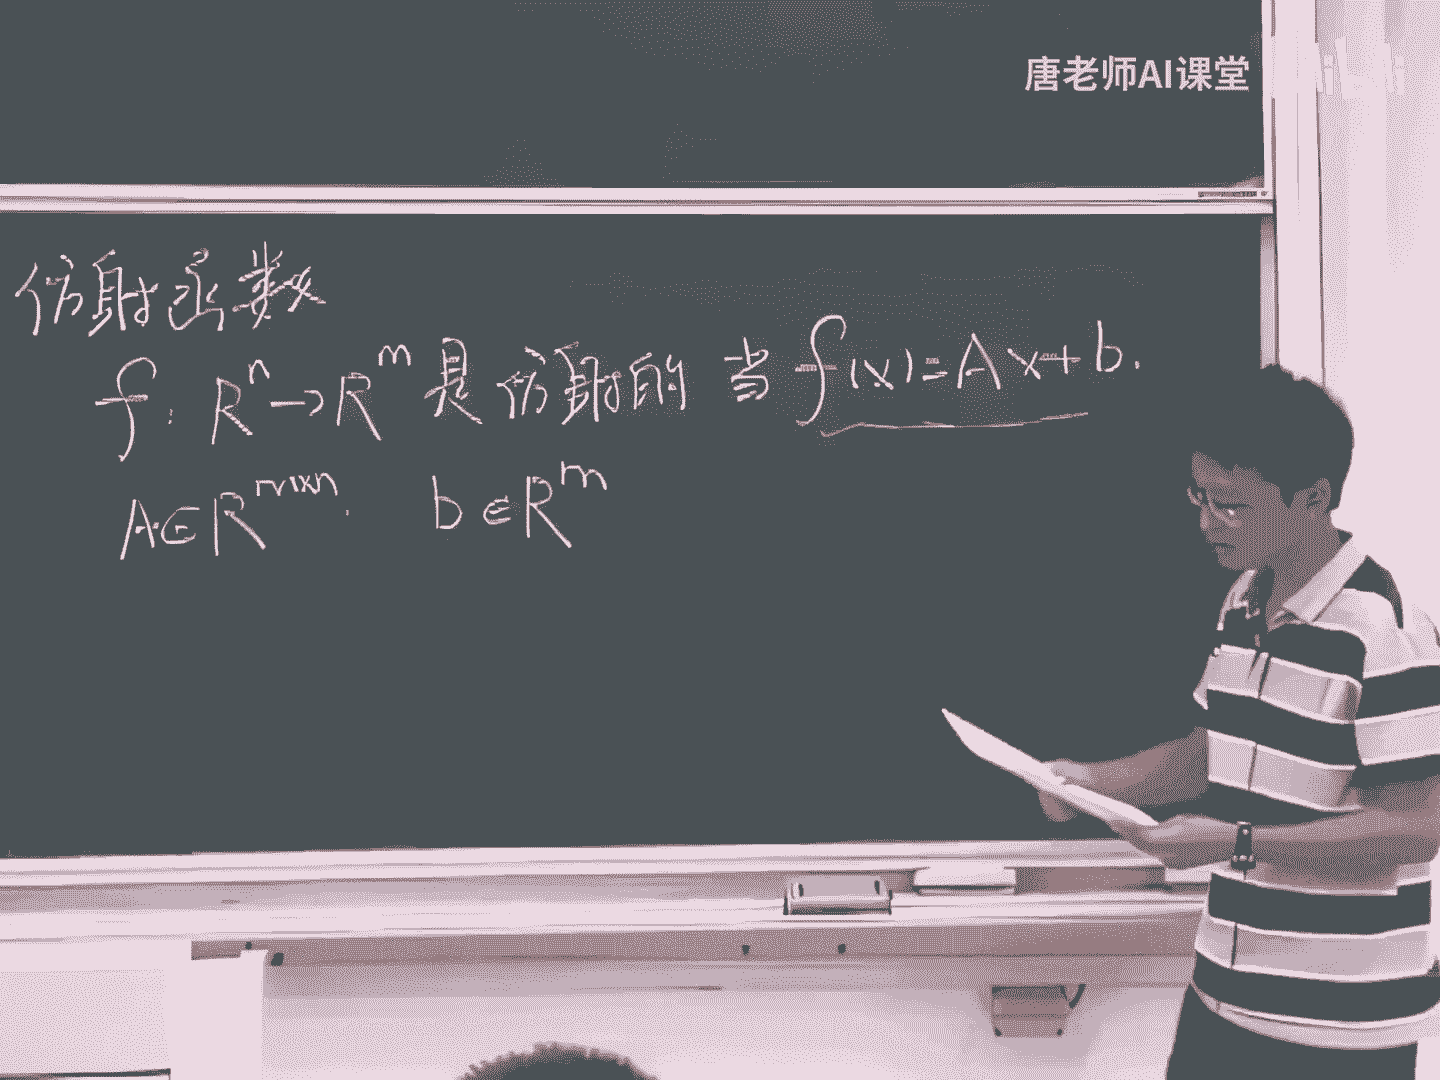 唐老师AI课堂
仿射函数
f: Rⁿ→Rᵐ 是仿射的 当 f(x)=Ax+b.
A∈Rᵐˣⁿ. b∈Rᵐ